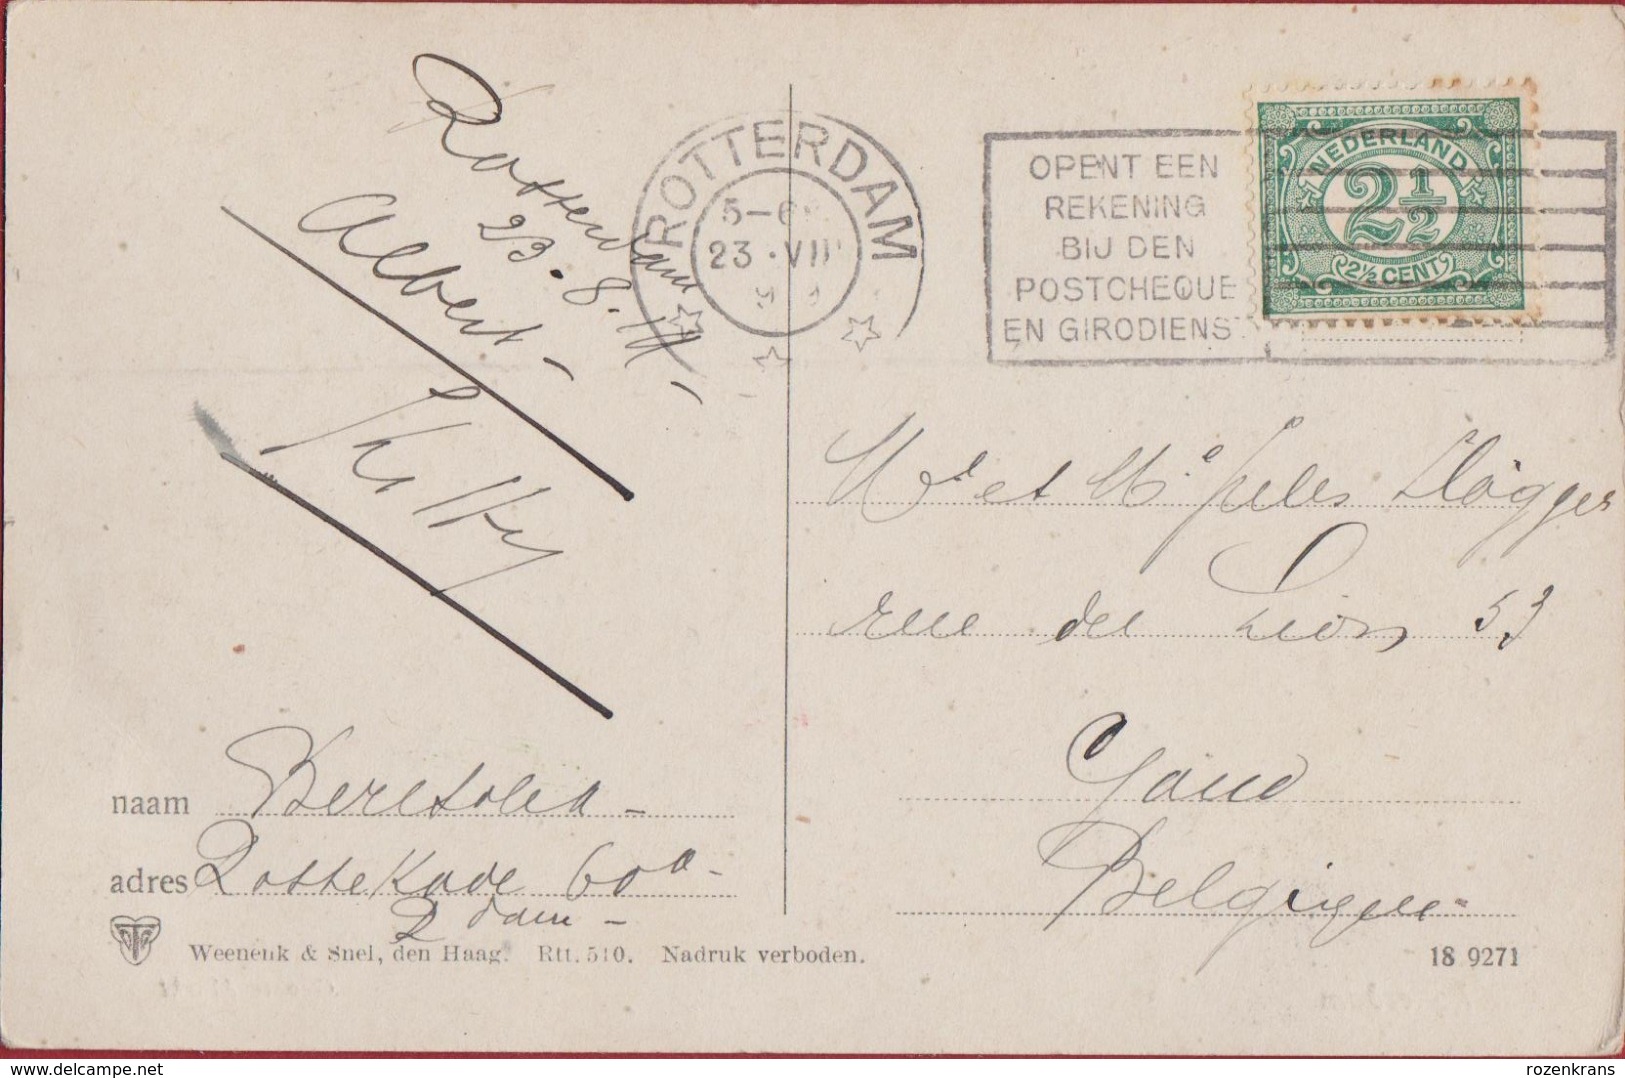 Rotterdam
23.8.
Albert -
ROTTERDAM
5-6
23.VII
OPENT EEN
REKENING
BIJ DEN
POSTCHEQUE
EN GIRODIENST
NEDERLAND
2½
2½ CENT
Mr et Me
rue du Lion 53
Gand
Belgique
naam
adres Rottekade 60a -
R dam -
Weenenk & Snel, den Haag. Rtt. 510. Nadruk verboden.
18 9271
www.delcampe.net
rozenkrans